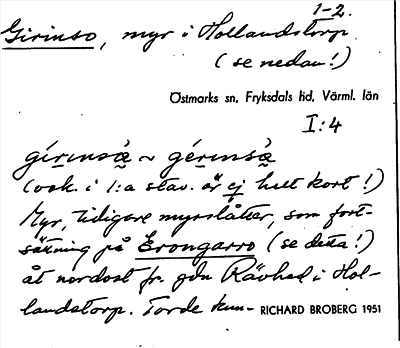 1-2.
Girinso, myr i Hollandstorp
(se nedan!)
Östmarks sn, Fryksdals hd, Värml. län
I:4
gírinsò̭ ~ gérinsò̭
(vok. i 1:a stav. är ej helt kort!)
Myr, tidigare myrslåtter, som fort-
sättning på Erongarro (se detta!)
åt nordost fr. gdn Rävhed i Hol-
landstorp. Torde kun- RICHARD BROBERG 1951